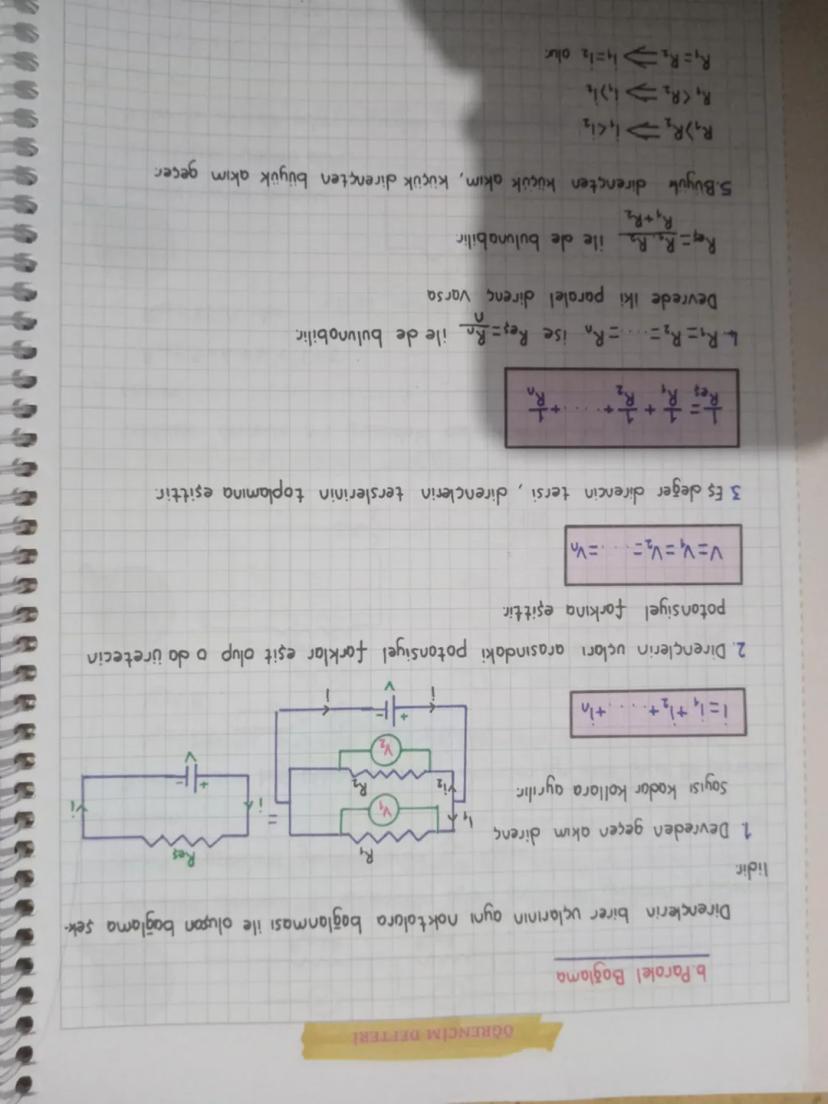 ÖĞRENCİM DEFTERİ
b. Paralel Bağlama
Dirençlerin birer uçlarının aynı noktalara bağlanması ile oluşan bağlama şek-
lidir.
1. Devreden geçen akım direnç
sayısı kadar kollara ayrılır.
i=i₁+i₂+.....+iₙ
R₁
i₁
V₁
R₂
i₂
V₂
i
+
-
V
i
=
Reş
i
+
-
V
i
2. Dirençlerin uçları arasındaki potansiyel farklar eşit olup o da üretecin
potansiyel farkına eşittir.
V=V₁=V₂=.....=Vₙ
3 Eş değer direncin tersi, dirençlerin terslerinin toplamına eşittir.
1/Reş = 1/R₁ + 1/R₂ +.....+ 1/Rₙ
4. R₁=R₂=.....=Rₙ ise Reş=Rₙ/n ile de bulunabilir.
Devrede iki paralel direnç varsa
Reş=R₁.R₂/R₁+R₂ ile de bulunabilir.
5. Büyük dirençten küçük akım, küçük dirençten büyük akım geçer.
R₁>R₂ ⟹ i₁<i₂
R₁<R₂ ⟹ i₁>i₂
R₁=R₂ ⟹ i₁=i₂ olur.